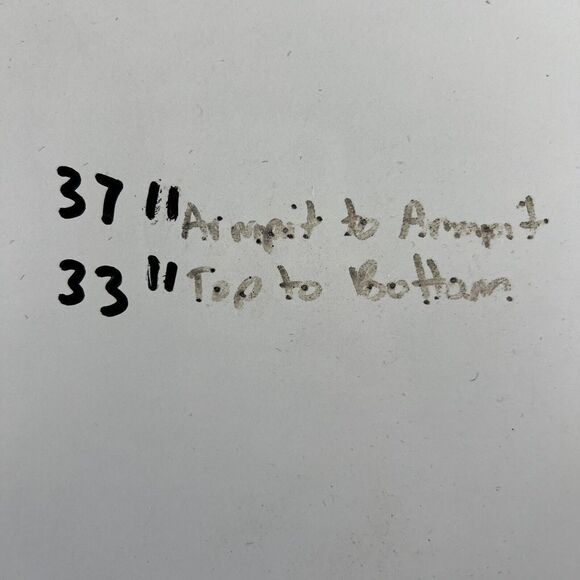 37" Armpit to Armpit
33" Top to Bottom